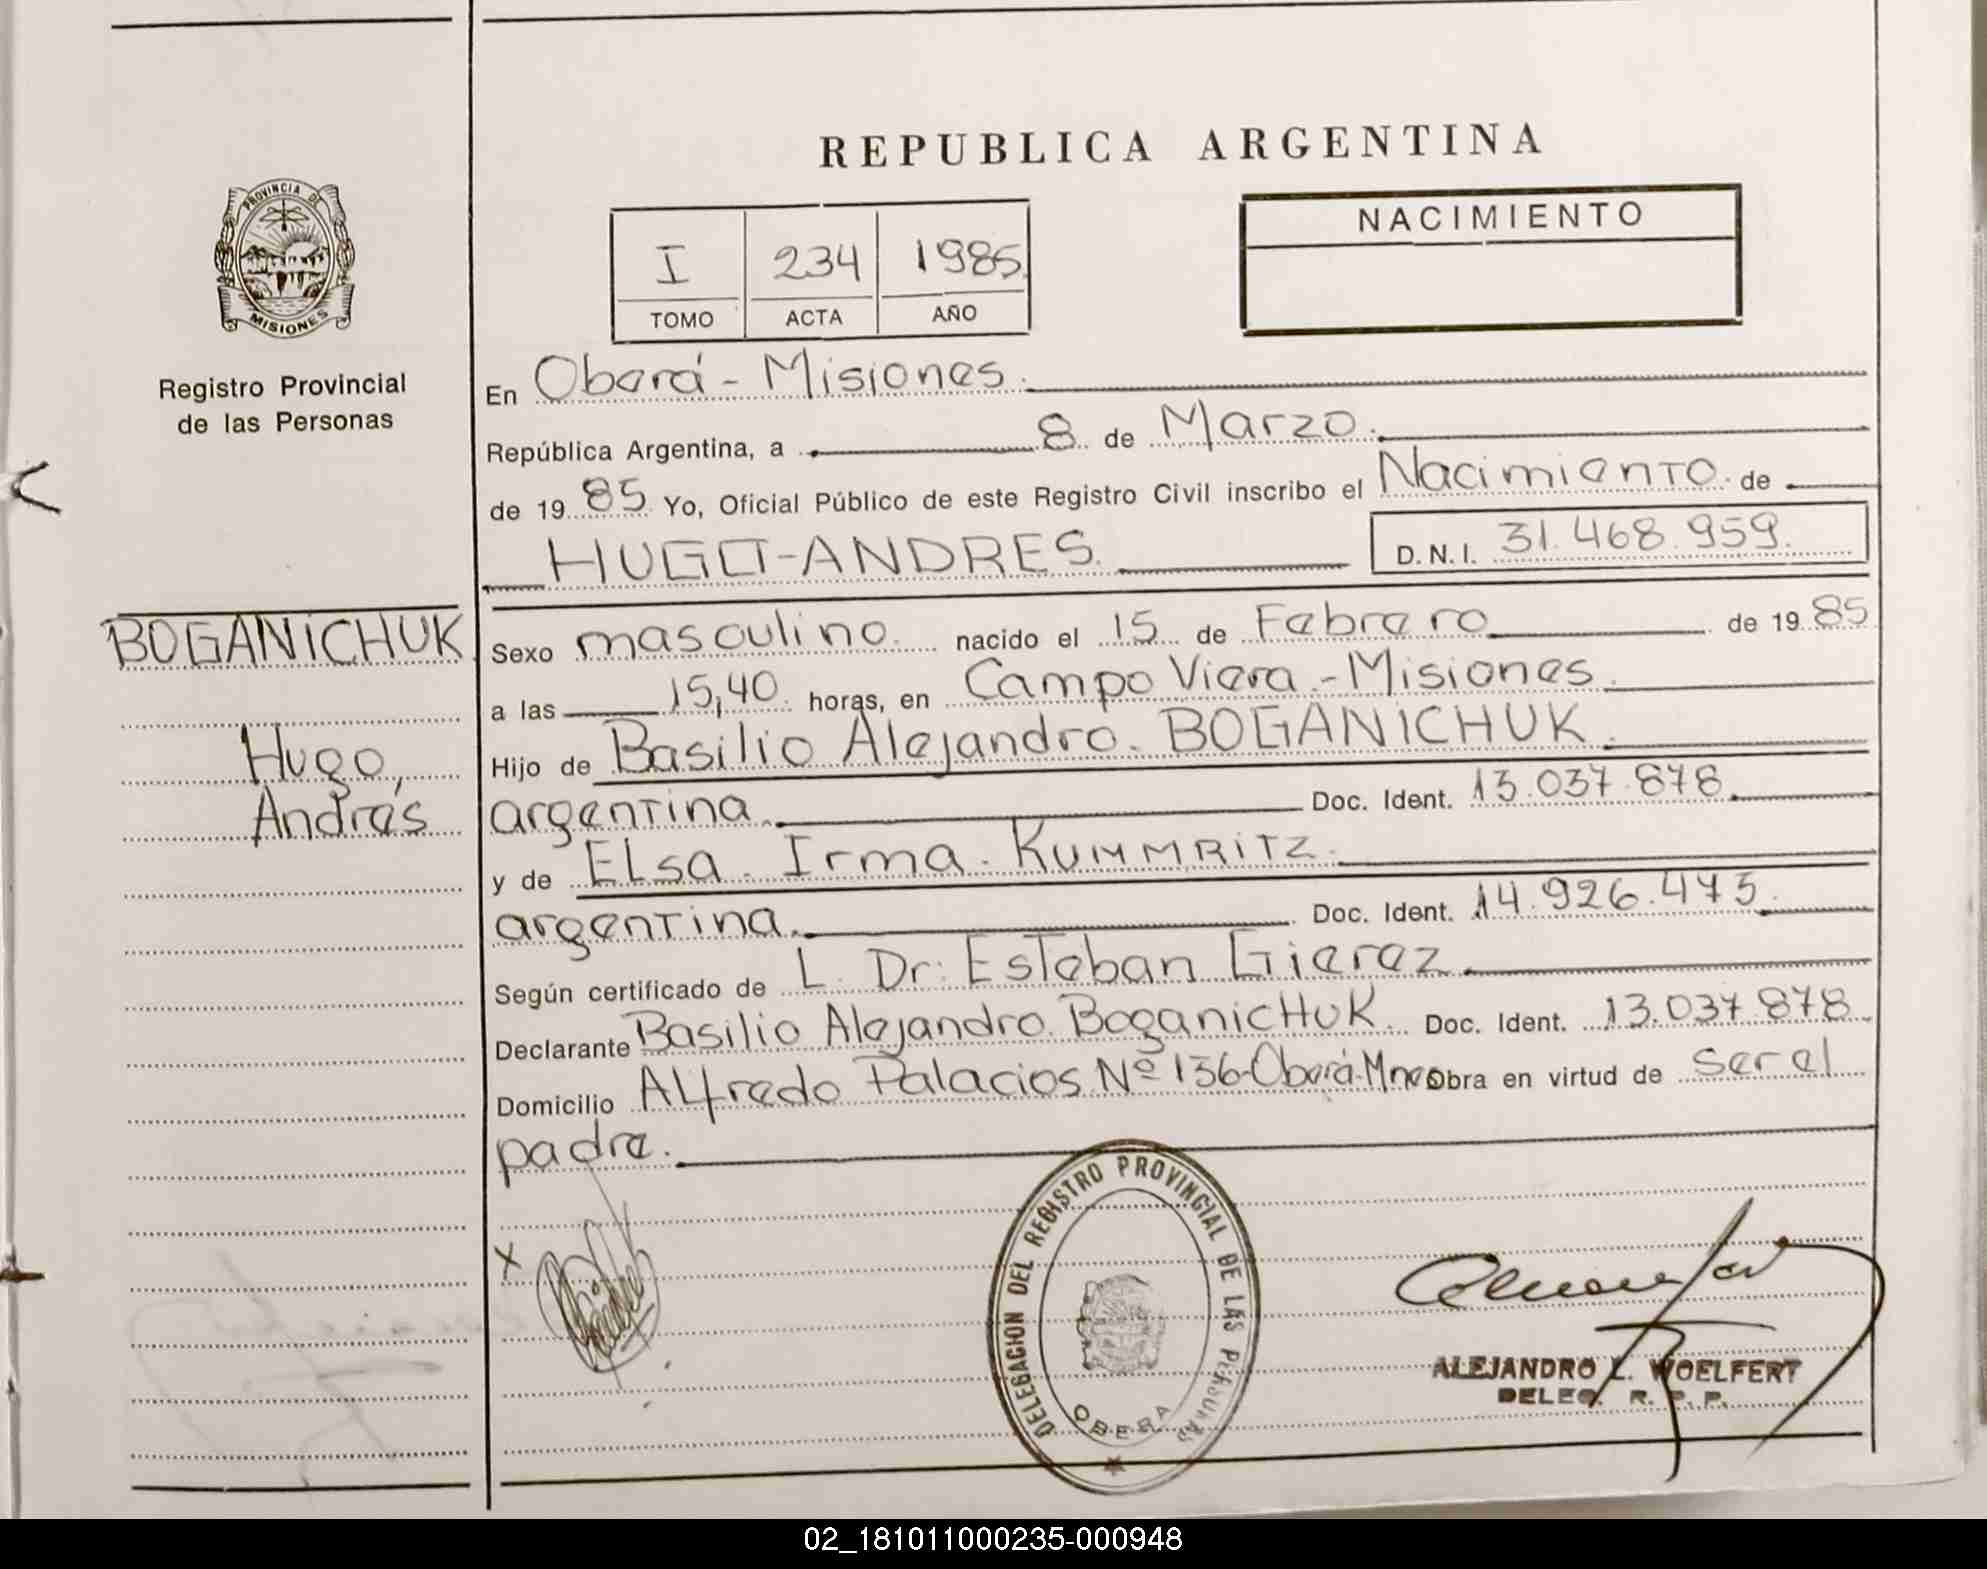 REPUBLICA ARGENTINA
PROVINCIA DE
MISIONES
Registro Provincial
de las Personas
I 234 1985
TOMO ACTA AÑO
NACIMIENTO
En Oberá - Misiones.
República Argentina, a 8 de Marzo.
de 1985 Yo, Oficial Público de este Registro Civil inscribo el Nacimiento de
HUGO-ANDRES. D.N.I. 31.468.959.
BOGANICHUK
Hugo,
Andrés
Sexo masculino. nacido el 15 de Febrero de 1985
a las 15,40. horas, en Campo Viera - Misiones.
Hijo de Basilio Alejandro. BOGANICHUK.
argentina. Doc. Ident. 13.037.878.
y de Elsa. Irma. KUMMRITZ.
argentina. Doc. Ident. 14.926.475.
Según certificado de L. Dr: Esteban Gierez.
Declarante Basilio Alejandro. BoganicHuK. Doc. Ident. 13.037.878.
Domicilio Alfredo Palacios Nº 136-Oberá-Mnes Obra en virtud de ser el
padre.
X
DELEGACION DEL REGISTRO PROVINCIAL DE LAS PERSONAS
OBERA
ALEJANDRO L. WOELFERT
DELEG. R. P. P.
02_181011000235-000948